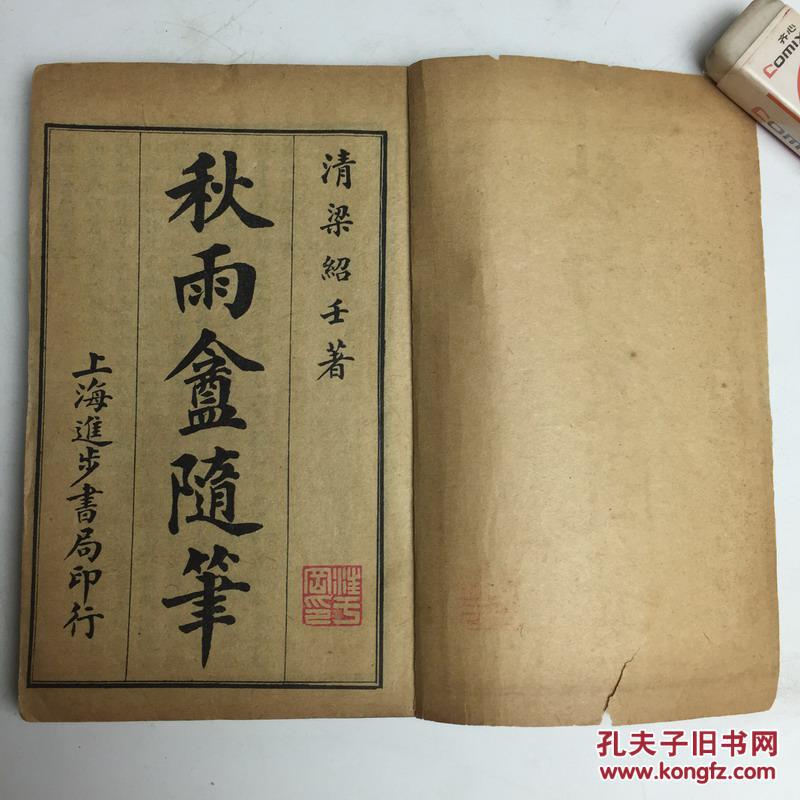 清梁紹壬著
秋雨盦隨筆
上海進步書局印行
齐心
COMIX
孔夫子旧书网
www.kongfz.com